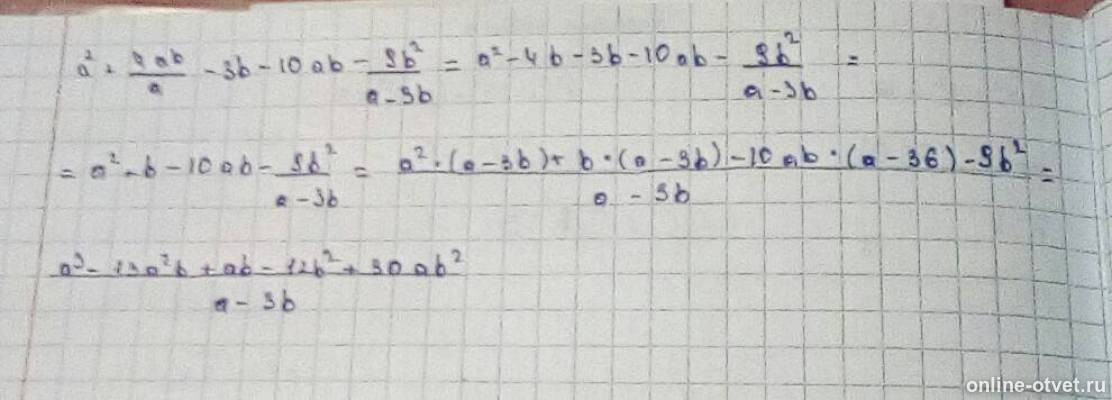 a² + 4ab/a - 3b - 10ab - 9b²/(a - 3b) = a² - 4b - 3b - 10ab - 9b²/(a - 3b) =
= a² - b - 10ab - 9b²/(a - 3b) = (a²·(a - 3b) + b·(a - 3b) - 10ab·(a - 36) - 9b²)/(a - 3b) =
(a³ - 13a²b + ab - 12b² + 30ab²)/(a - 3b)
online-otvet.ru